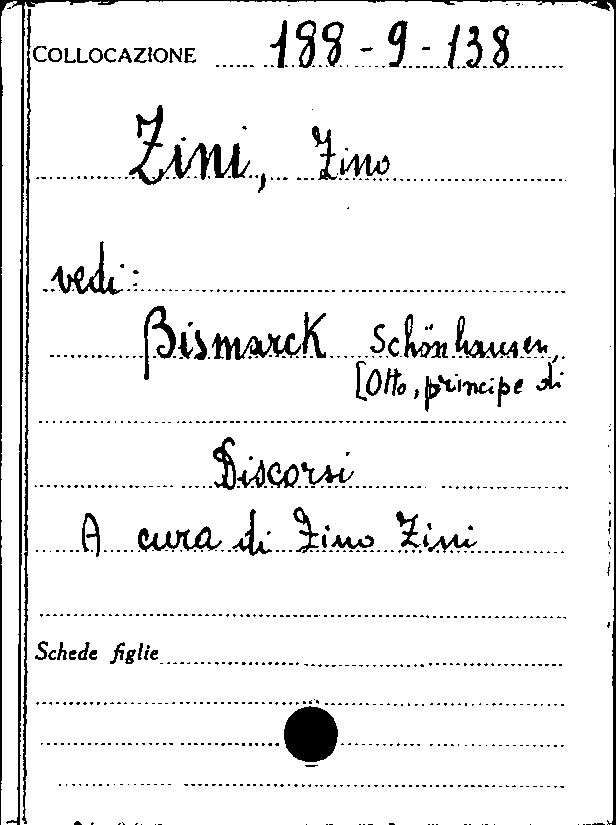 COLLOCAZIONE 188-9-138
Zini, Zino
vedi:
Bismarck Schönhausen,
[Otto, principe di
Discorsi
A cura di Zino Zini
Schede figlie